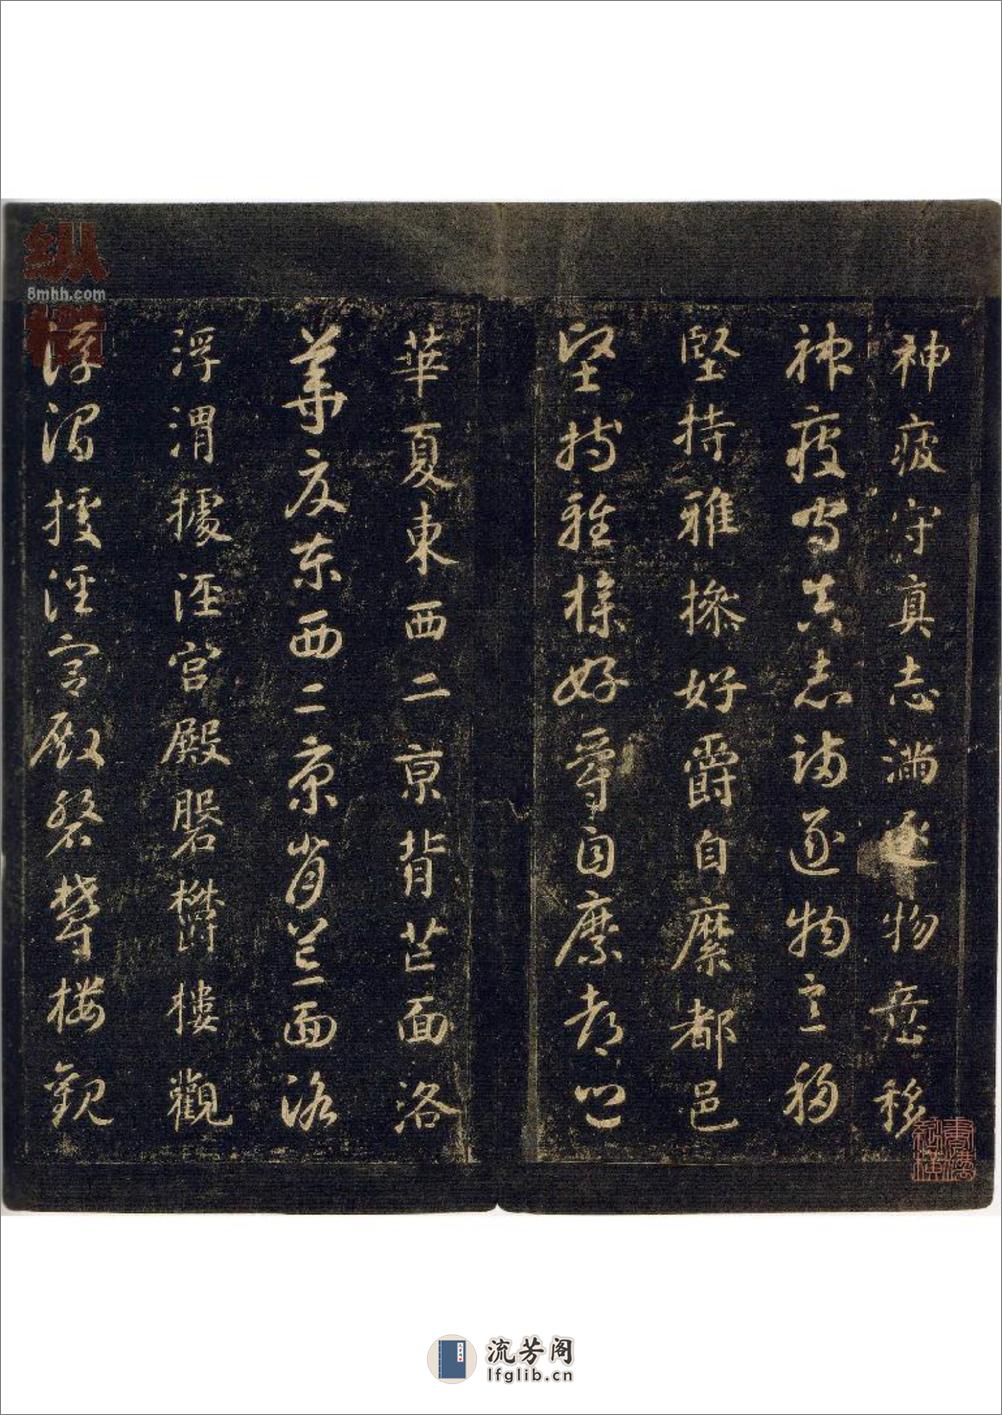 神疲守真志滿逐物意移
神疲守真志滿逐物意移
堅持雅操好爵自縻都邑
堅持雅操好爵自縻都邑
華夏東西二京背芒面洛
華夏東西二京背芒面洛
浮渭據涇宮殿磐欎樓觀
浮渭據涇宮殿磐欝樓觀
纵
8mhh.com
流芳阁
lfglib.cn